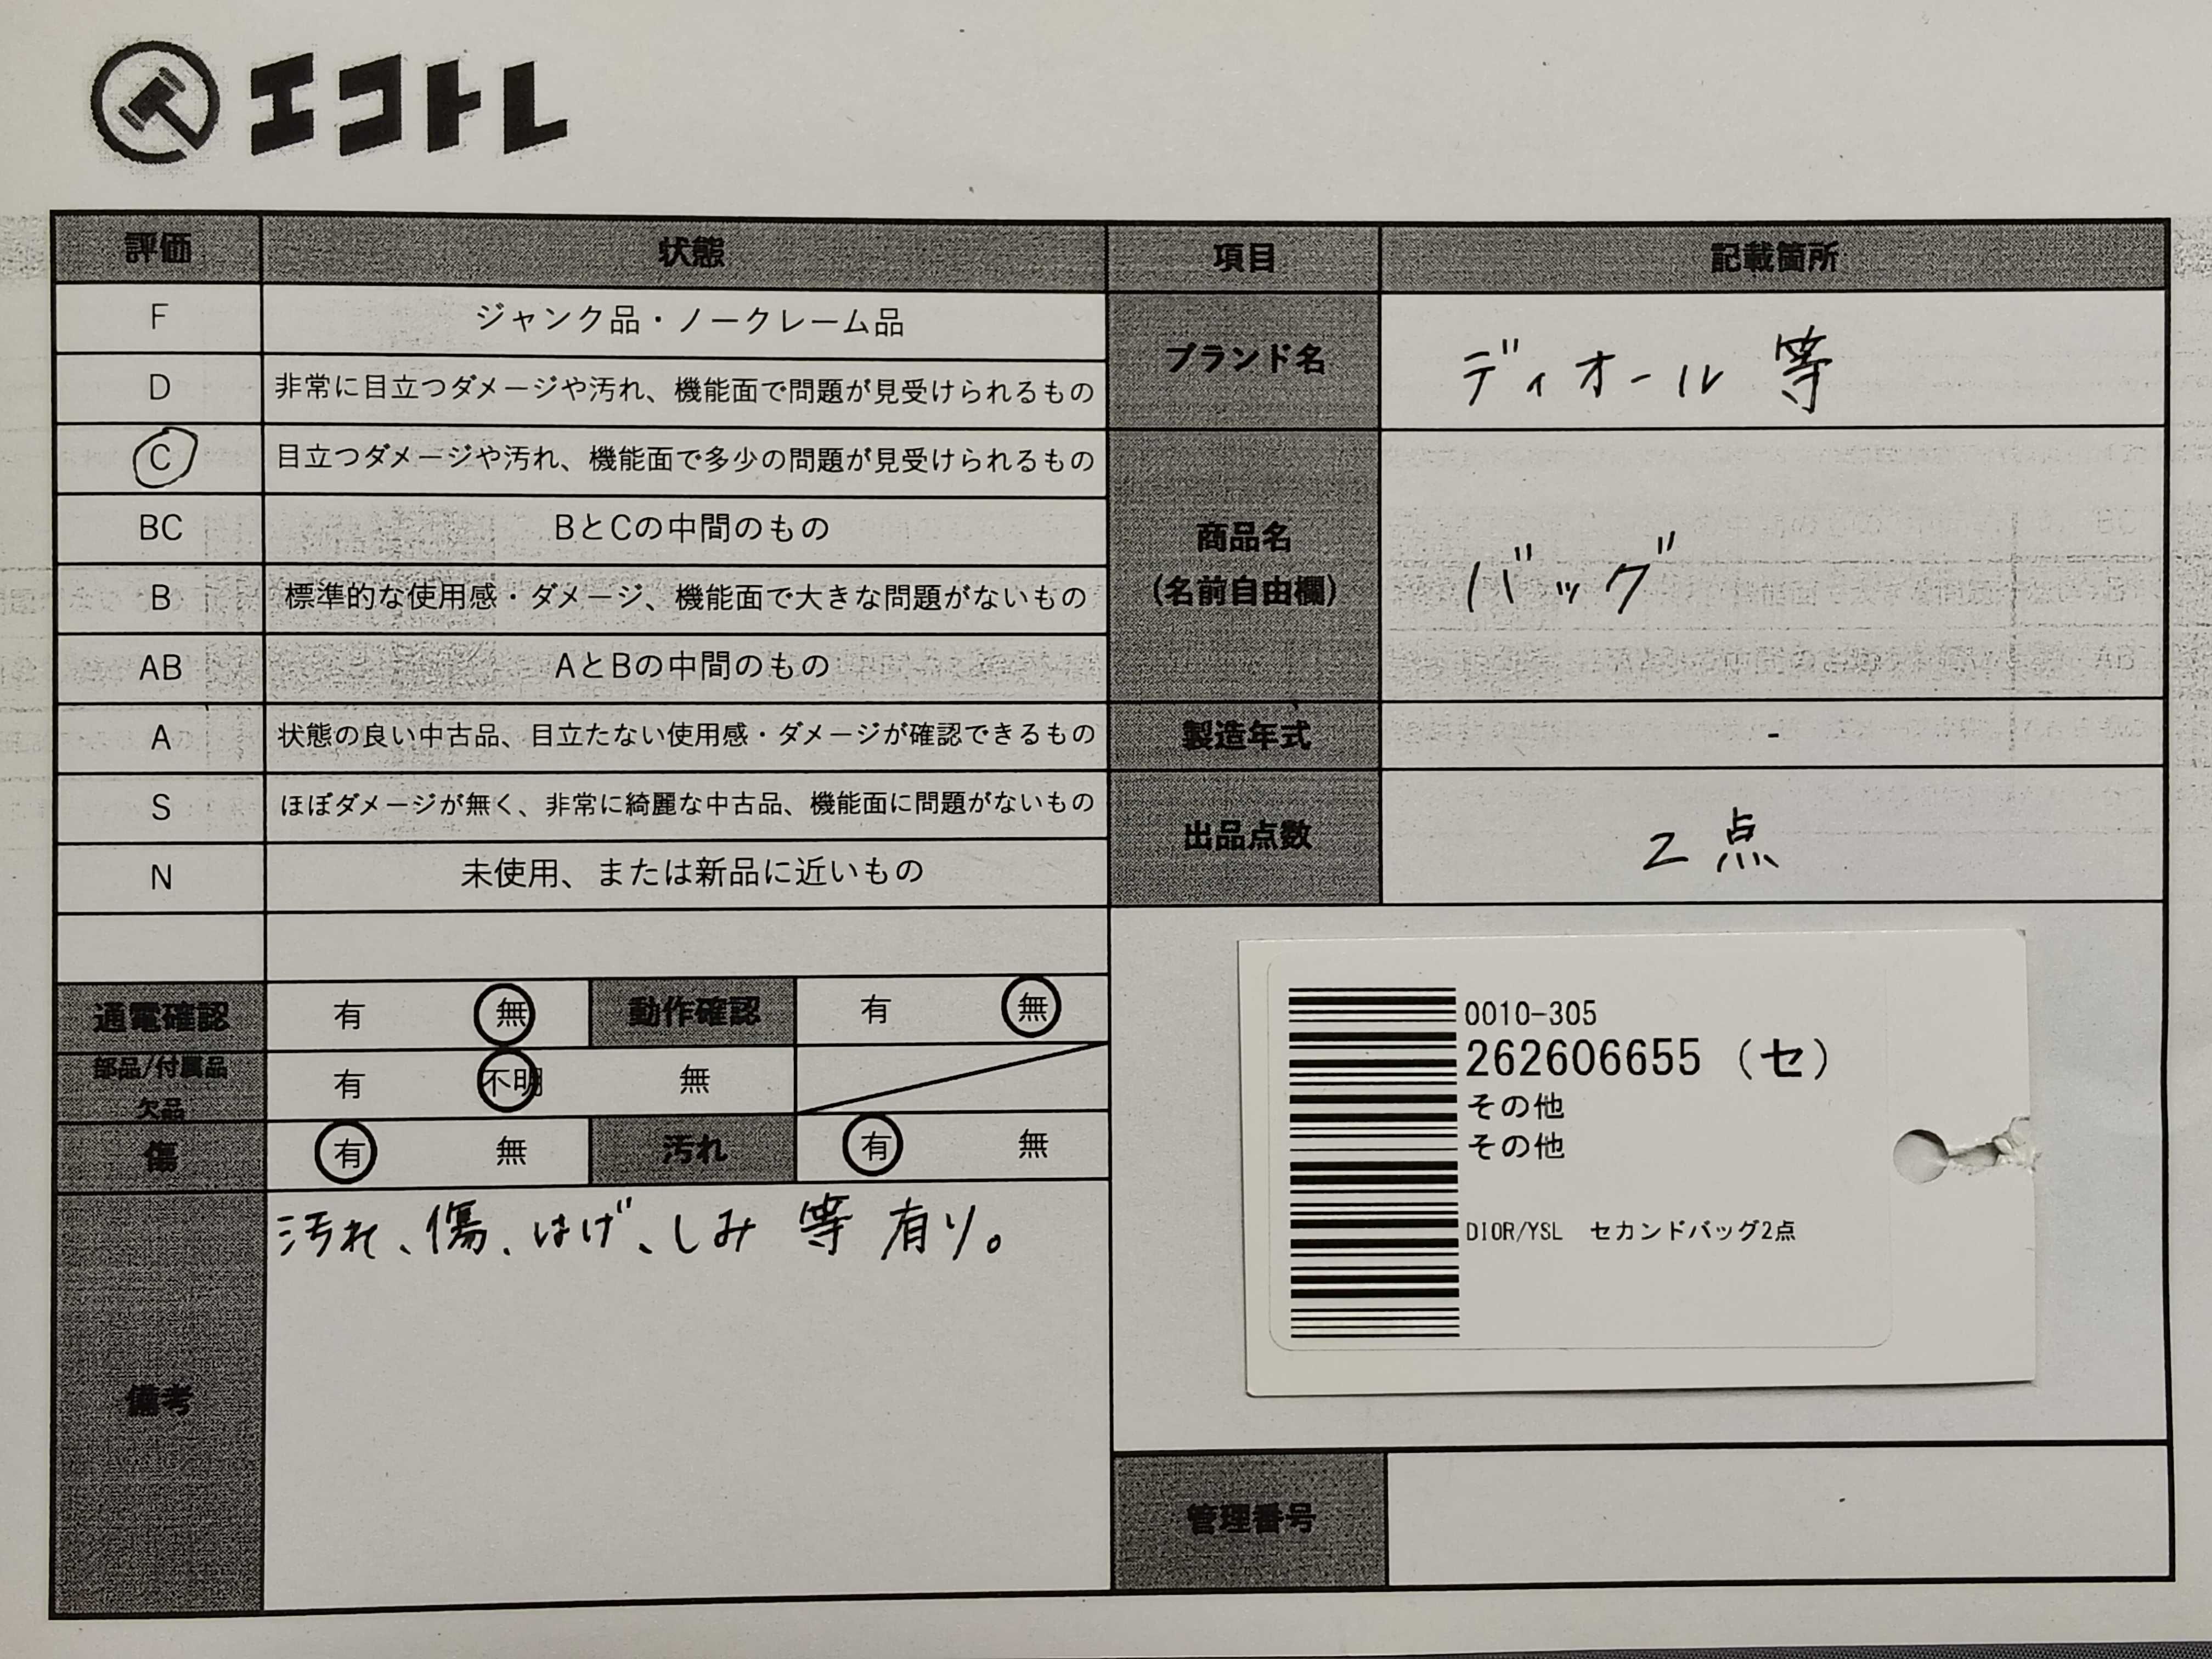 エコトレ
評価 状態 項目 記載箇所
F ジャンク品・ノークレーム品
D 非常に目立つダメージや汚れ、機能面で問題が見受けられるもの
C 目立つダメージや汚れ、機能面で多少の問題が見受けられるもの
BC BとCの中間のもの
B 標準的な使用感・ダメージ、機能面で大きな問題がないもの
AB AとBの中間のもの
A 状態の良い中古品、目立たない使用感・ダメージが確認できるもの
S ほぼダメージが無く、非常に綺麗な中古品、機能面に問題がないもの
N 未使用、または新品に近いもの
ブランド名 ディオール 等
商品名
(名前自由欄)
バッグ
製造年式 -
出品点数 2点
通電確認 有 無 動作確認 有 無
部品/付属品
欠品
有 不明 無
傷 有 無 汚れ 有 無
備考
汚れ、傷、はげ、しみ 等 有り。
0010-305
262606655 (セ)
その他
その他
DIOR/YSL セカンドバッグ2点
管理番号